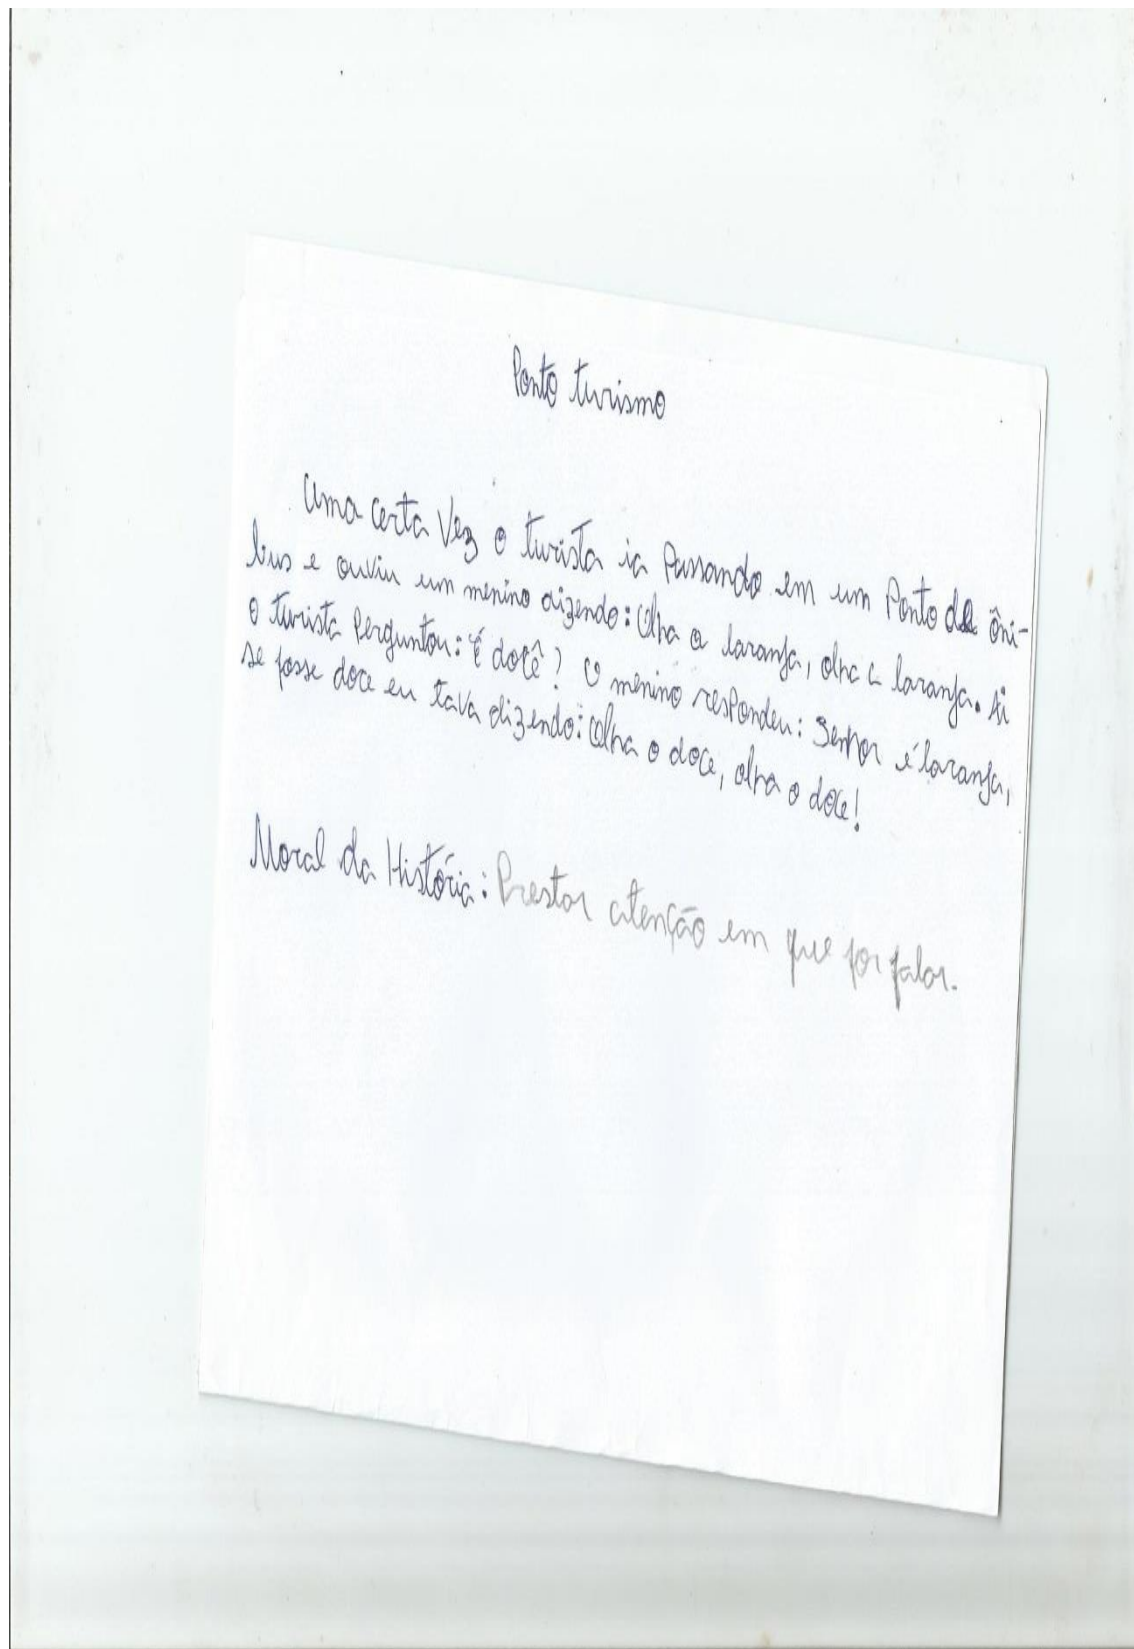 Ponto turismo
Uma certa Vez o turista ia Passando em um Ponto de ôni-
bus e ouviu um menino dizendo: Olha a laranja, olha a laranja. Ai
o turista Perguntou: É docê? O menino respondeu: Senhor é laranja,
se fosse doce eu tava dizendo: Olha o doce, olha o doce!
Moral da História: Prestar atenção em que for falar.